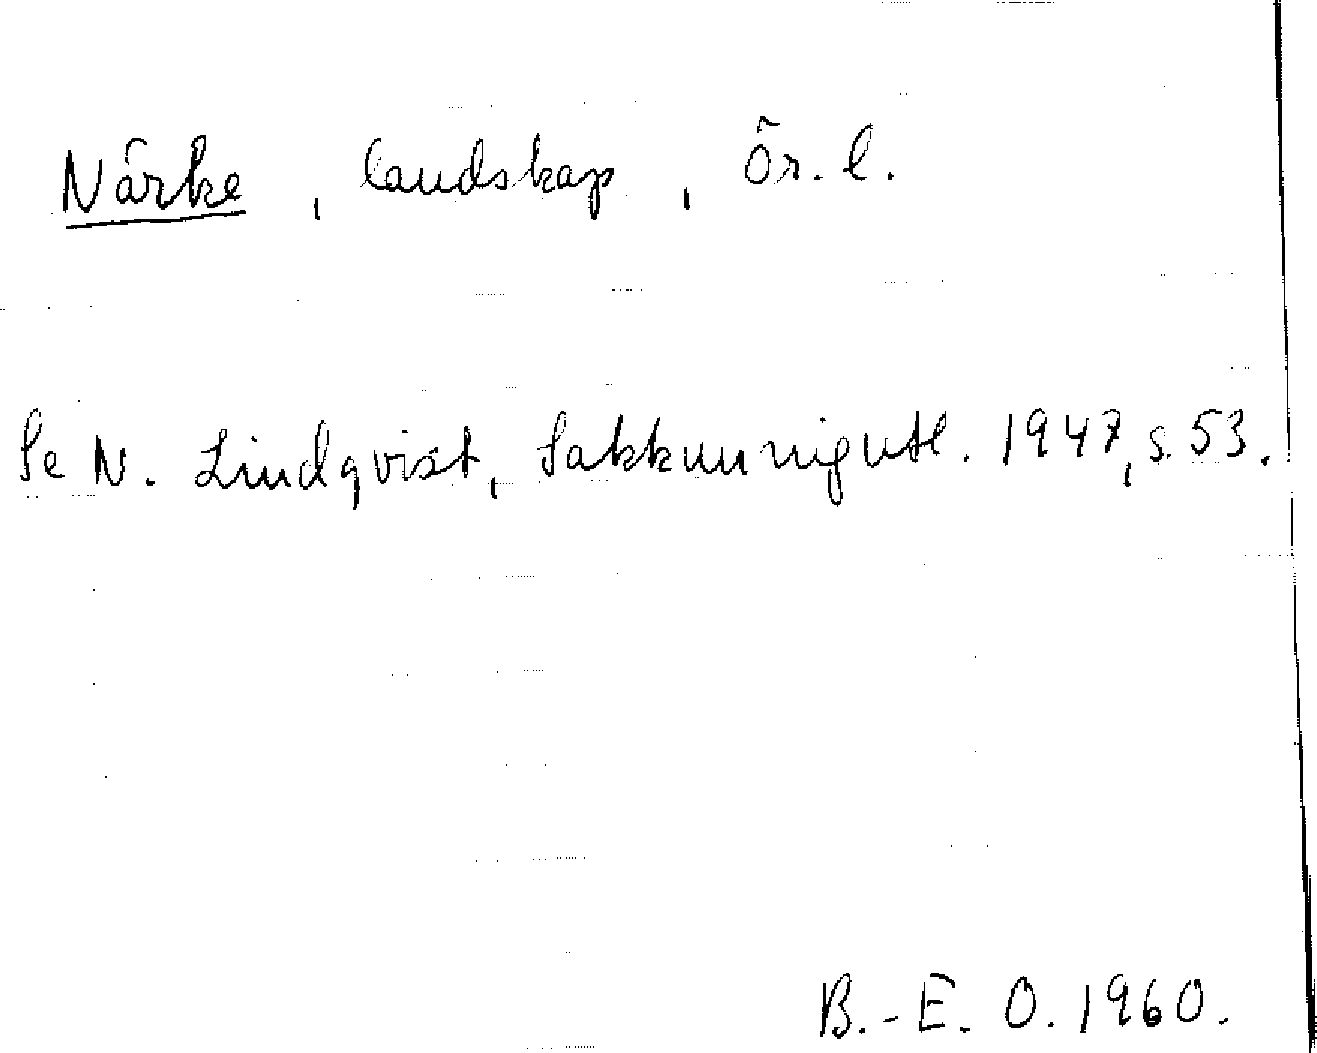 Närke, landskap, Ör. l.
Se N. Lindqvist, Sakkunnigutl. 1947, s. 53.
B.-E. O. 1960.